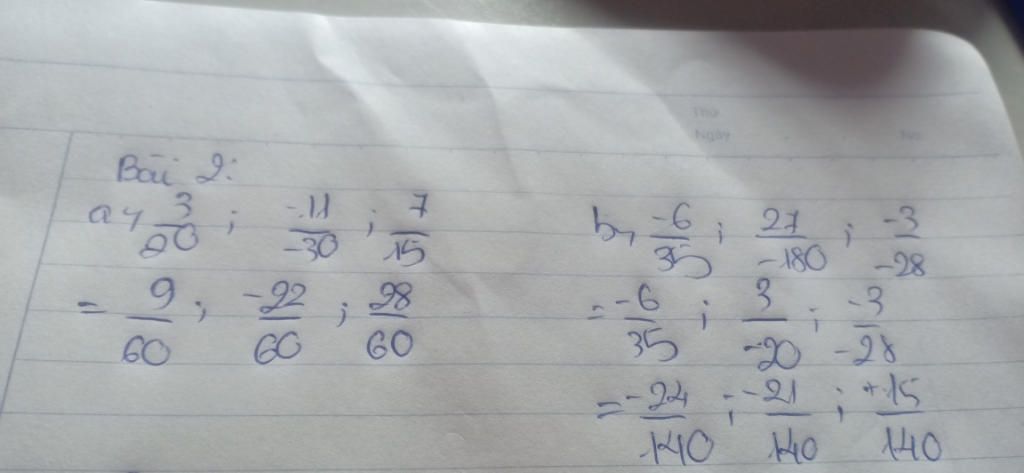 Thứ
Ngày No
Bài 2:
a, 3/20 ; -11/-30 ; 7/15
= 9/60 ; -22/60 ; 28/60
b, -6/35 ; 27/-180 ; -3/-28
= -6/35 ; 3/-20 ; -3/-28
= -24/140 ; -21/140 ; +15/140